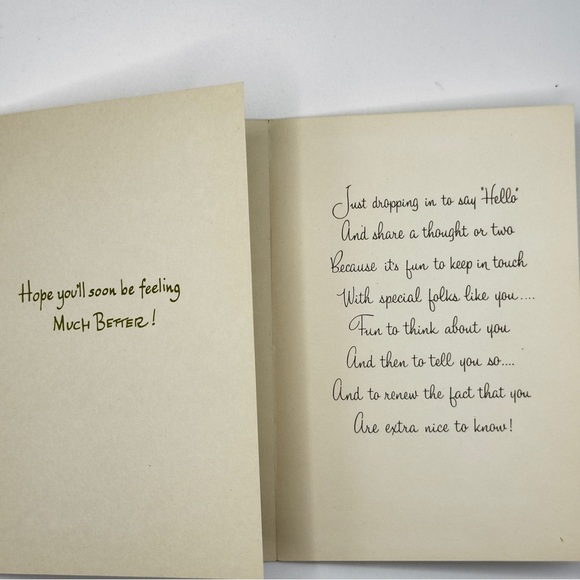 Hope you'll soon be feeling
MUCH BETTER!
Just dropping in to say "Hello"
And share a thought or two
Because it's fun to keep in touch
With special folks like you....
Fun to think about you
And then to tell you so....
And to renew the fact that you
Are extra nice to know!